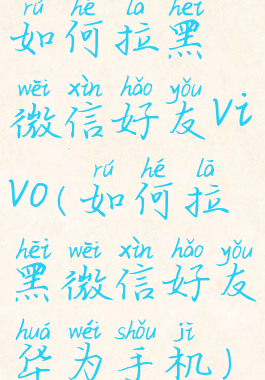 rú hé lā hēi
如何拉黑
wēi xìn hǎo yǒu
微信好友vi
rú hé lā
vo(如何拉
hēi wēi xìn hǎo yǒu
黑微信好友
huá wéi shǒu jī
华为手机)